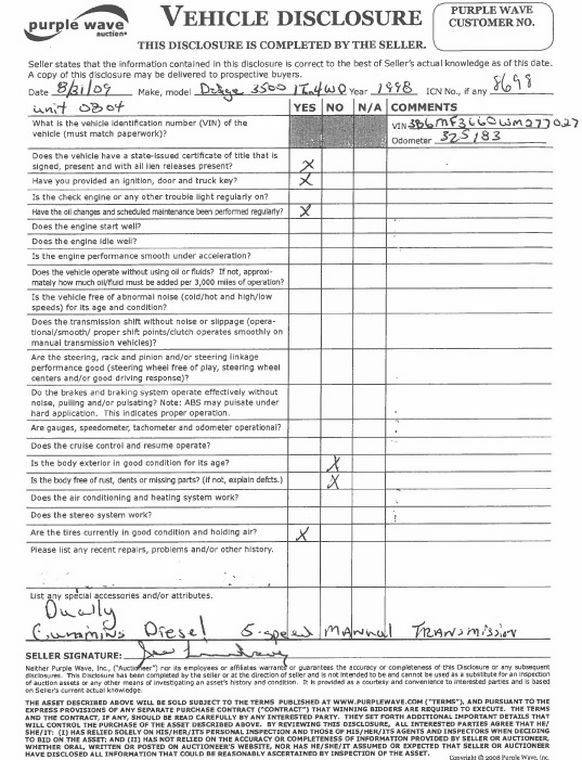 purple wave
auction®
VEHICLE DISCLOSURE
PURPLE WAVE
CUSTOMER NO.
THIS DISCLOSURE IS COMPLETED BY THE SELLER.
Seller states that the information contained in this disclosure is correct to the best of Seller's actual knowledge as of this date.
A copy of this disclosure may be delivered to prospective buyers.
Date 8/21/09 Make, model Dodge 3500 1T 4WD Year 1998 ICN No., if any 8698
unit 0304
YES NO N/A COMMENTS
What is the vehicle identification number (VIN) of the
vehicle (must match paperwork)?
VIN 3B6MF3660WM277027
Odometer 325183
Does the vehicle have a state-issued certificate of title that is
signed, present and with all lien releases present? X
Have you provided an ignition, door and truck key? X
Is the check engine or any other trouble light regularly on?
Have the oil changes and scheduled maintenance been performed regularly? X
Does the engine start well?
Does the engine idle well?
Is the engine performance smooth under acceleration?
Does the vehicle operate without using oil or fluids? If not, approxi-
mately how much oil/fluid must be added per 3,000 miles of operation?
Is the vehicle free of abnormal noise (cold/hot and high/low
speeds) for its age and condition?
Does the transmission shift without noise or slippage (opera-
tional/smooth/ proper shift points/clutch operates smoothly on
manual transmission vehicles)?
Are the steering, rack and pinion and/or steering linkage
performance good (steering wheel free of play, steering wheel
centers and/or good driving response)?
Do the brakes and braking system operate effectively without
noise, pulling and/or pulsating? Note: ABS may pulsate under
hard application. This indicates proper operation.
Are gauges, speedometer, tachometer and odometer operational?
Does the cruise control and resume operate?
Is the body exterior in good condition for its age? X
Is the body free of rust, dents or missing parts? (if not, explain defcts.) X
Does the air conditioning and heating system work?
Does the stereo system work?
Are the tires currently in good condition and holding air? X
Please list any recent repairs, problems and/or other history.
List any special accessories and/or attributes.
Dually
Cummins Diesel 5-speed Manual Transmission
SELLER SIGNATURE:
Neither Purple Wave, Inc., ("Auctioneer") nor its employees or affiliates warrants or guarantees the accuracy or completeness of this Disclosure or any subsequent
disclosures. This Disclosure has been completed by the seller or at the direction of seller and is not intended to be and cannot be used as a substitute for an inspection
of auction assets or any other means of investigating an asset's history and condition. It is provided as a courtesy and convenience to interested parties and is based
on Seller's current actual knowledge.
THE ASSET DESCRIBED ABOVE WILL BE SOLD SUBJECT TO THE TERMS PUBLISHED AT WWW.PURPLEWAVE.COM ("TERMS"), AND PURSUANT TO THE
EXPRESS PROVISIONS OF ANY SEPARATE PURCHASE CONTRACT ("CONTRACT") THAT WINNING BIDDERS ARE REQUIRED TO EXECUTE. THE TERMS
AND THE CONTRACT, IF ANY, SHOULD BE READ CAREFULLY BY ANY INTERESTED PARTY. THEY SET FORTH ADDITIONAL IMPORTANT DETAILS THAT
WILL CONTROL THE PURCHASE OF THE ASSET DESCRIBED ABOVE. BY REVIEWING THIS DISCLOSURE, ALL INTERESTED PARTIES AGREE THAT HE/
SHE/IT: (I) HAS RELIED SOLELY ON HIS/HER/ITS PERSONAL INSPECTION AND THOSE OF HIS/HER/ITS AGENTS AND INSPECTORS WHEN DECIDING
TO BID ON THE ASSET; AND (II) HAS NOT RELIED ON THE ACCURACY OR COMPLETENESS OF INFORMATION PROVIDED BY SELLER OR AUCTIONEER,
WHETHER ORAL, WRITTEN OR POSTED ON AUCTIONEER'S WEBSITE, NOR HAS HE/SHE/IT ASSUMED OR EXPECTED THAT SELLER OR AUCTIONEER
HAVE DISCLOSED ALL INFORMATION THAT COULD BE REASONABLY ASCERTAINED BY INSPECTION OF THE ASSET.
Copyright © 2008 Purple Wave, Inc.